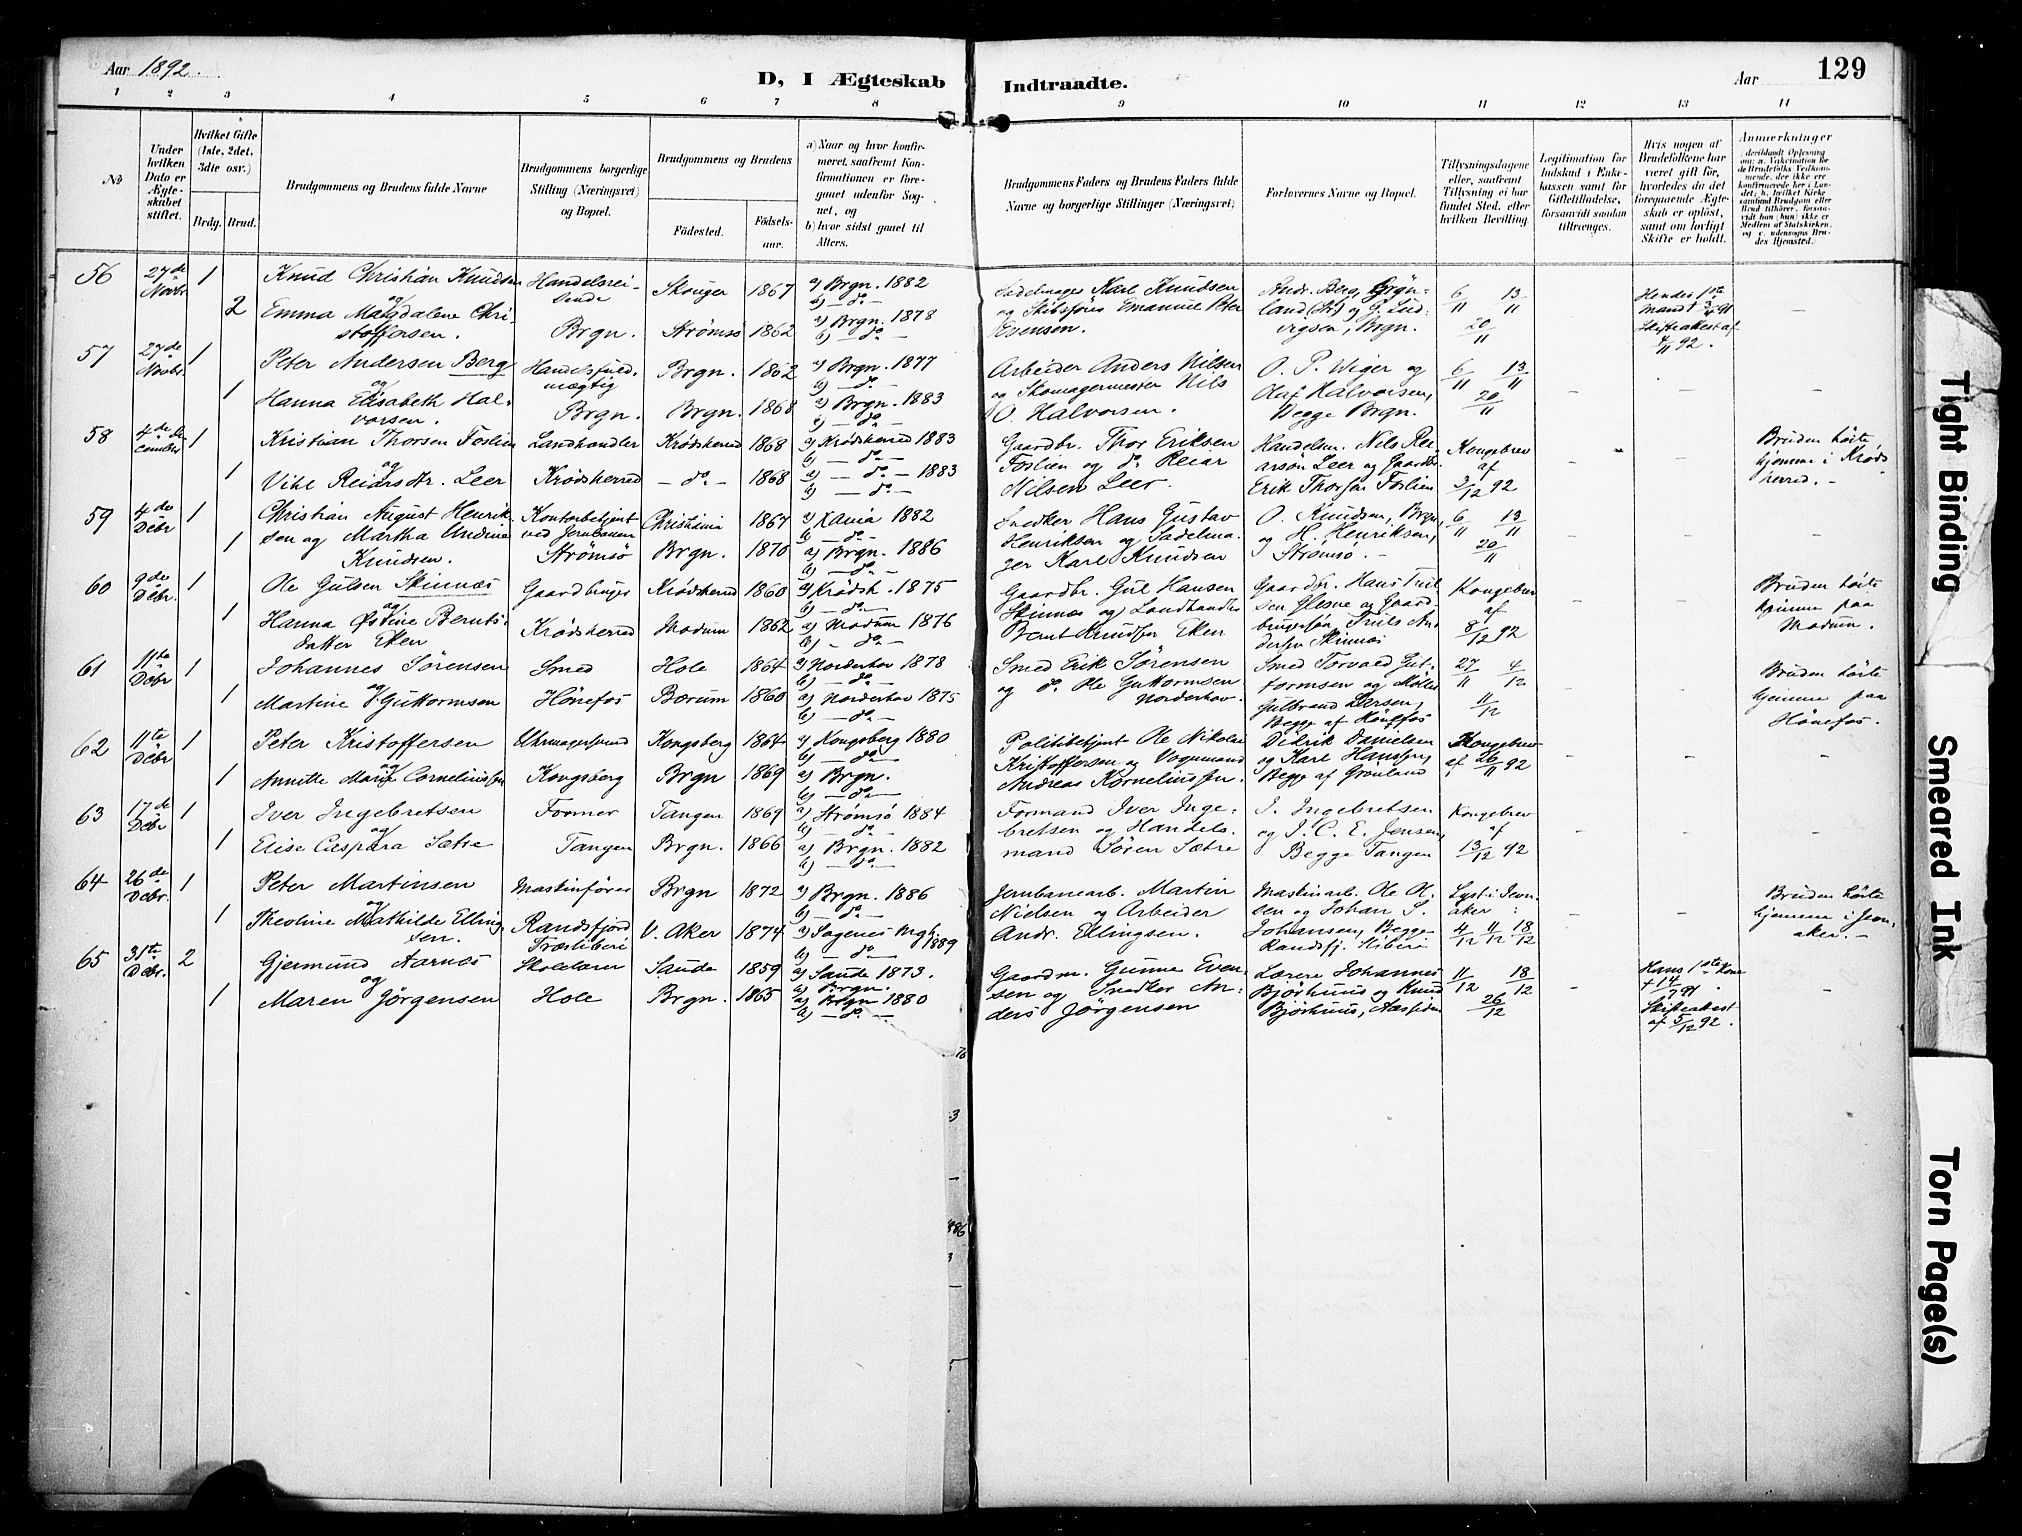 Aar 1892.
D, I Ægteskab Indtraadte.
Aar
129
1 2 3 4 5 6 7 8 9 10 11 12 13 14
No
Under hvilken Dato er Ægteskabet stiftet.
Hvilket Gifte (1ste, 2det, 3die osv.)
Brdg. Brud.
Brudgommens og Brudens fulde Navne
Brudgommens borgerlige Stilling (Næringsvei) og Bopæl.
Brudgommens og Brudens
Fødested. Fødselsaar.
a) Naar og hvor konfirmeret, saafremt Konfirmationen er foregaaet udenfor Sognet, og
b) hvor sidst gaaet til Alters.
Brudgommens Faders og Brudens Faders fulde Navne og borgerlige Stillinger (Næringsvei)
Forlovernes Navne og Bopæl.
Tillysningsdagene eller, saafremt Tillysning ei har fundet Sted, efter hvilken Bevilling.
Legitimation for Indskud i Enkekassen samt for Giftetilladelse, forsaavidt saadan tiltrænges.
Hvis nogen af Brudefolkene har været gift før, hvorledes da det foregaaende Ægteskab er opløst, samt om lovligt Skifte er holdt.
Anmerkninger
56 27de Novbr 1 Knud Christian Knudsen Handelsreisende Skouger 1867 a) Brgn. 1882 b) — do — Sadelmager Karl Knudsen Andr. Berg, Grøn- 6/11 13/11 Hendes 1ste
2 og Emma Magdalene Christoffersen. Brgn. Strømsø 1862 a) Brgn. 1878 b) — do — og Skibsfører Emanuel Peter Evensen. land og G. Ludvigsen, Brgn. 20/11 Mand † Skifteattest af 92.
57 27de Novbr 1 Peter Andersen Berg Handelsfuldmægtig Brgn. 1862 a) Brgn. 1877 b) — do — Arbeider Anders Nilsen O. P. Wiger og 6/11 13/11
1 og Hanna Elisabeth Halvorsen. Brgn. Brgn. 1868 a) Brgn. 1883 b) — do — og Skomagermester Nils O. Halvorsen. Olaf Halvorsen, Begge Brgn. 20/11
58 4de December 1 Kristian Thorsen Foslien Landhandler Krødsherred 1868 a) Krødsherred 1883 b) — do — Gaardbr. Thor Eriksen Handelsm. Nils Rei- Kongebrev Bruden hørte
1 og Reiarsdtr. Leer Krødsherred — do — 1868 a) — do — 1883 b) — do — Foslien og do Reiar Nilsen Leer. arsøn Leer og Gaardbr. Erik Thorsen Foslien af 3/12 92 hjemme i Krødsherred. —
59 4de Debr 1 Christian August Henrik- Kontorbetjent Christiania 1867 a) Xania 1882 b) — do — Snedker Hans Gustav O. Knudsen, Brgn, 6/11 13/11
1 sen og Martha Undine Knudsen. ved Jernbanen Strømsø Brgn. 1870 a) Brgn. 1886 b) — do — Henriksen og Sadelmager Karl Knudsen og H. Henriksen, Strømsø. — 20/11
60 9de Debr. 1 Ole Gulsen Skinnæs Gaardbruger Krødsherred 1860 a) Krødsh. 1875 b) — do — Gaardbr. Gul Hansen Gaardbr. Hans Trulsen Glesne og Gaard- Kongebrev Bruden hørte
1 og Hanna Østine Berntsdatter Eken Krødsherred Modum 1862 a) Modum 1876 b) — do — Skinnæs og Landhandler Bernt Knudsen Eken brugersøn Truls Andersen Skinnæs af 8/12 92 hjemme paa Modum.
61 11te Debr 1 Johannes Sørensen Smed Hole 1864 a) Norderhov 1878 b) — do — Smed Erik Sørensen Smed Torvald Gut- 27/11 4/12 Bruden hørte
1 og Martine Guttormsen Hønefos Bærum 1860 a) Norderhov 1875 b) — do — og do Ole Guttormsen Norderhov. tormsen og Møller Gulbrand Larsen, Begge af Hønefos 11/12 hjemme paa Hønefos.
62 11te Debr 1 Peter Kristoffersen Uhrmagersvend Kongsberg 1864 a) Kongsberg 1880 b) — do — Politibetjent Ole Nikolai Didrik Danielsen Kongebrev
1 og Annette Marie Corneliussen Kongsberg Brgn 1869 a) Brgn. b) — do — Kristoffersen og Vognmand Andreas Korneliussen. og Karl Hansen, Begge af Grønland af 26/11 92
63 17de Debr 1 Iver Ingebretsen Former Tangen 1869 a) Strømsø 1884 b) — do — Formand Iver Inge- I. Ingebretsen Kongebrev
1 og Elise Caspara Sætre Tangen Brgn. 1866 a) Brgn. 1882 b) — do — bretsen og Handelsmand Søren Sætre og I. C. E. Jensen, Begge Tangen af 13/12 92
64 26de Debr. 1 Peter Martinsen Maskinfører Brgn 1872 a) Brgn. 1886 b) — do — Jernbanearb. Martin Maskinarb. Ole Ol- Lyst i Jevn- Bruden hørte
1 og Theoline Mathilde Ellingsen. Randsfjord Træsliberi V. Aker 1874 a) Sagenes Mgh. 1889 b) — do — Nielsen og Arbeider Andr. Ellingsen. sen og Johan S. Johansen, Begge Randsfj. Sliberi aker: 4/12 11/12 18/12 hjemme i Jevnaker. —
65 31te Debr. 2 Gjermund Aarnæs Skolelærer Saude 1859 a) Saude 1873. b) Brgn. Gaardm. Gunne Even- Lærere Johannes 11/12 18/12 Hans 1ste Kone
1 og Maren Jørgensen Hole Brgn. 1865 a) Brgn 1880 b) — do — sen og Snedker Anders Jørgensen Bjørhuus og Knud Bjørhuus, Aassiden 26/12 † 14/7 91. Skifteattest af 5/12 92.
76
3
886
3
5
Tight Binding
Smeared Ink
Torn Page(s)